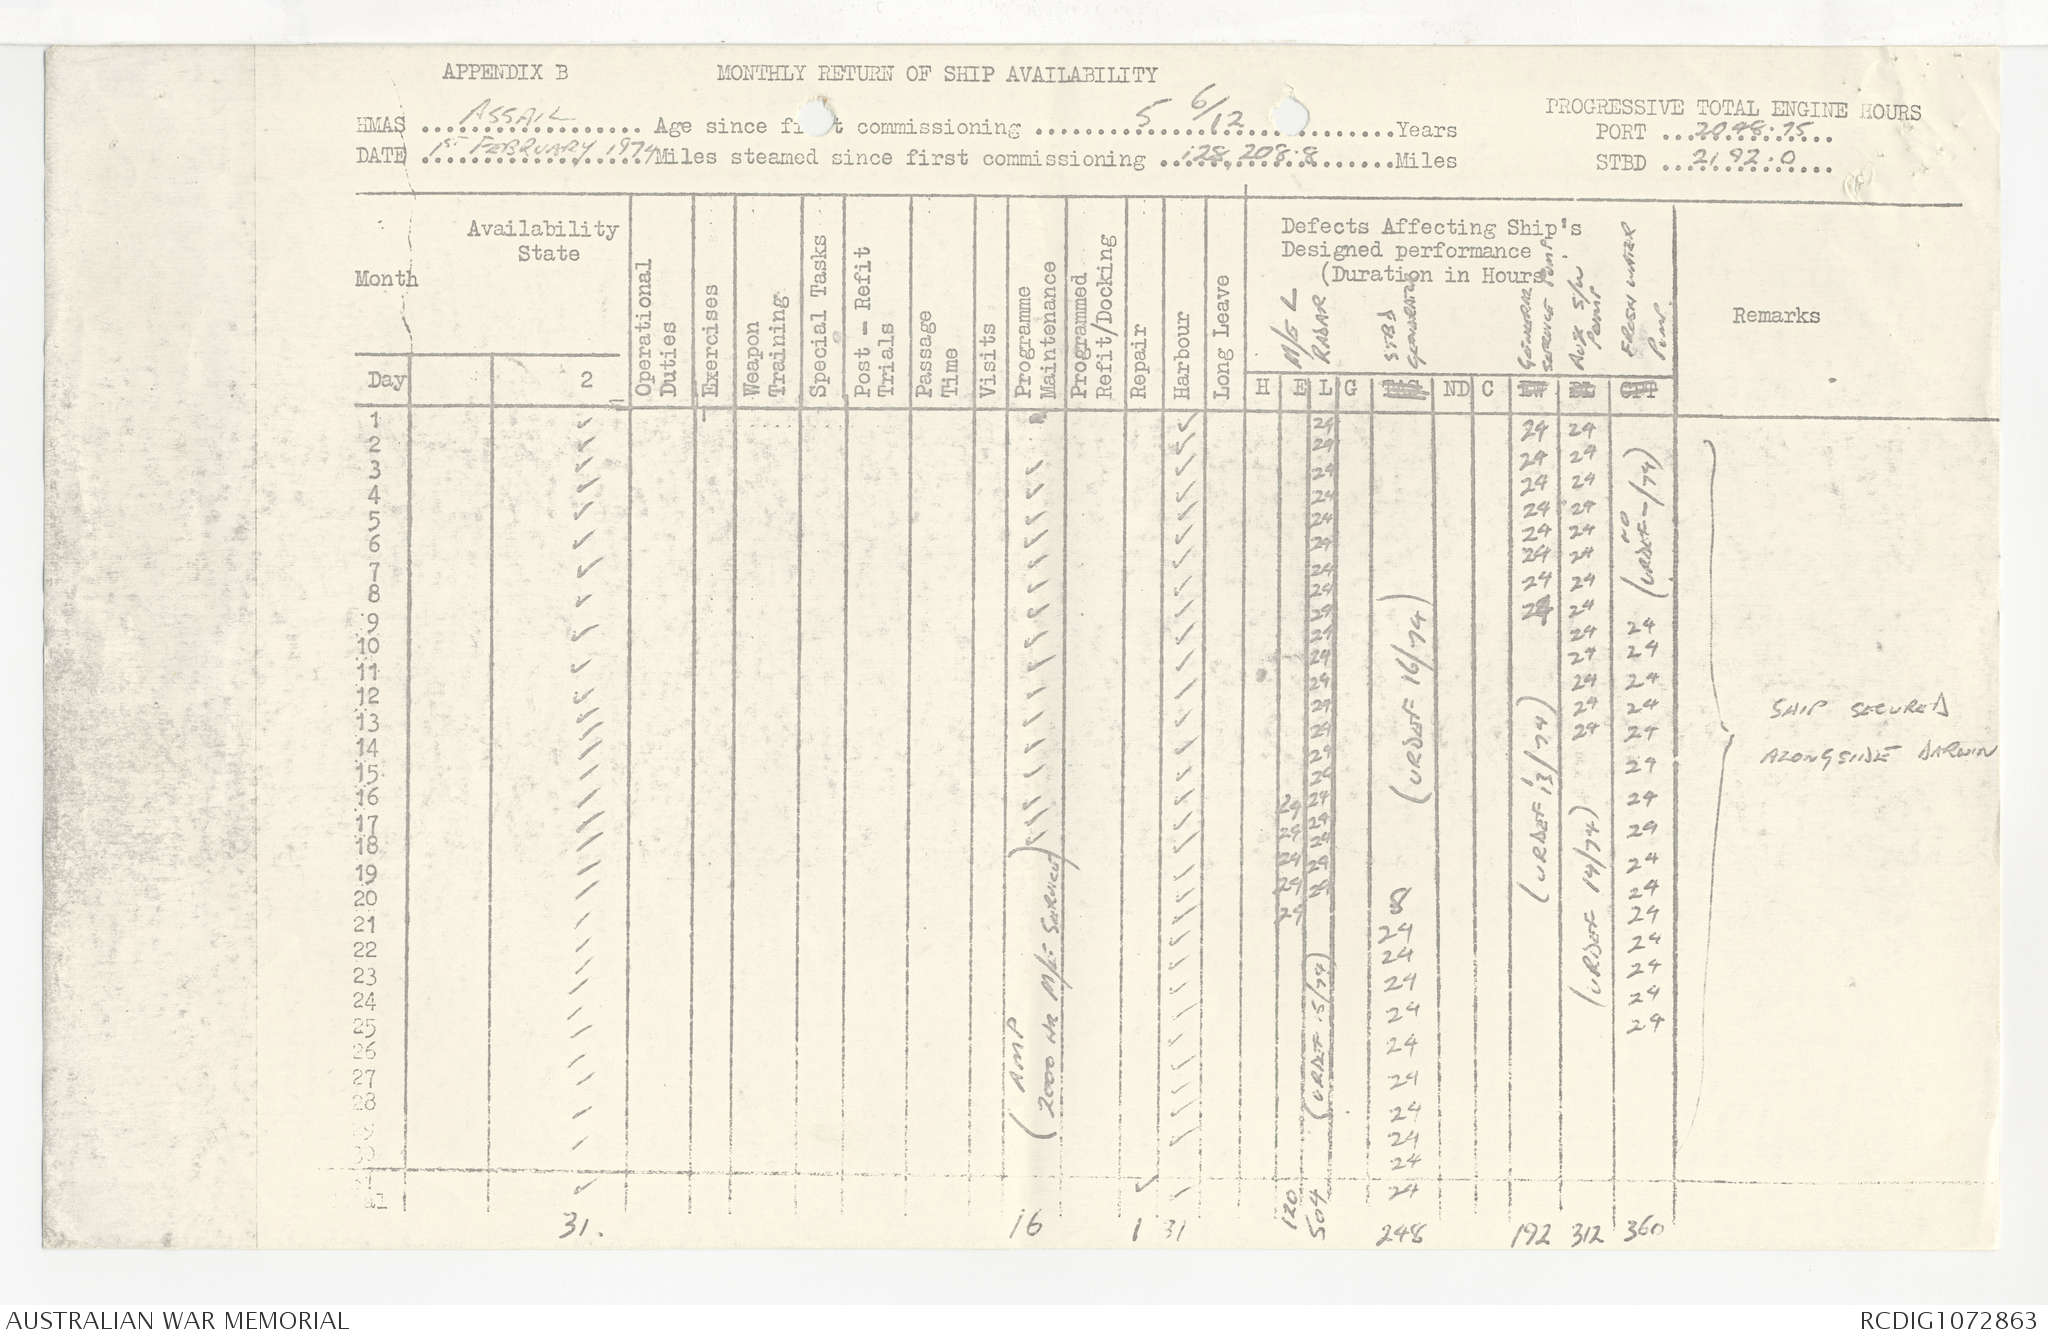 APPENDIX B MONTHLY RETURN OF SHIP AVAILABILITY
PROGRESSIVE TOTAL ENGINE HOURS
HMAS ASSAIL Age since first commissioning 5 6/12 Years PORT 2098.75
DATE 1ST FEBRUARY 1974 Miles steamed since first commissioning 128,208.8 Miles STBD 2192.0
Month
Availability State
Operational Duties
Exercises
Weapon Training
Special Tasks
Post - Refit Trials
Passage Time
Visits
Programme Maintenance
Programmed Refit/Docking
Repair
Harbour
Long Leave
Defects Affecting Ship's
Designed performance
(Duration in Hours
M/E L
RADAR
STBD GENERATOR
GENERAL SERVICE PUMP
AUX S/W PUMP
FRESH WATER PUMP
Remarks
Day 2 H E L G ND C GPP
1 ✓ ✓ 24 24 24
2 ✓ ✓ 24 24 24
3 ✓ ✓ ✓ 24 24 24
4 ✓ ✓ ✓ 24 24 24
5 ✓ ✓ ✓ 24 24 24
6 ✓ ✓ ✓ 24 24 24
7 ✓ ✓ ✓ 24 24 24
8 ✓ ✓ ✓ 24 24 24
9 ✓ ✓ ✓ 24 24 24
10 ✓ ✓ ✓ 24 24 24
11 ✓ ✓ ✓ 24 24 24
12 ✓ ✓ ✓ 24 24 24
13 ✓ ✓ ✓ 24 24 24
14 ✓ ✓ ✓ 24 24
15 ✓ ✓ ✓ 24 24
16 ✓ ✓ ✓ 24 24
17 ✓ ✓ ✓ 24 24 24
18 ✓ ✓ ✓ 24 24 24
19 ✓ ✓ 24 24 24
20 ✓ ✓ 24 24 24
21 ✓ ✓ 24 24 8 24
22 ✓ ✓ 24 24
23 ✓ ✓ 24 24
24 ✓ ✓ 24
25 ✓ ✓ 24
26 ✓ ✓ 24
27 ✓ ✓ 24
28 ✓ ✓ 24
(AMP
2000 HR M/E SERVICE)
(URDEF 15/74)
(URDEF 16/74)
(URDEF 13/74)
(URDEF 14/74)
(URDEF NO -/74)
SHIP SECURED
ALONGSIDE DARWIN
31. 16 1 31 120 504 248 192 312 360
AUSTRALIAN WAR MEMORIAL RCDIG1072863